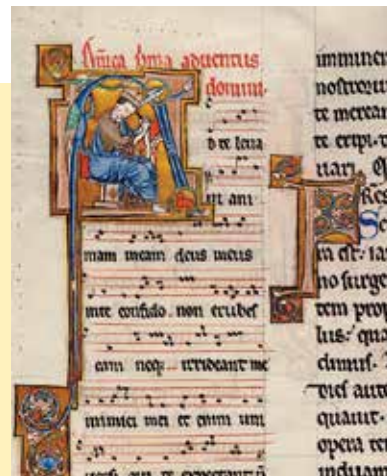 aduentus
domini.
D te leua
ui ani
mam meam deus meus
inte confido. non erubeſ
cam neq. irrideant me
inimici mei et enim uni
uersi qui te expectant
imminen
nostroru
te merea
te eripi. t
uari. Q
Res
Sc
ta est: ia
no surge
tem prop
lus: qua
dimur.
dies aute
quauit.
opera ten
induam